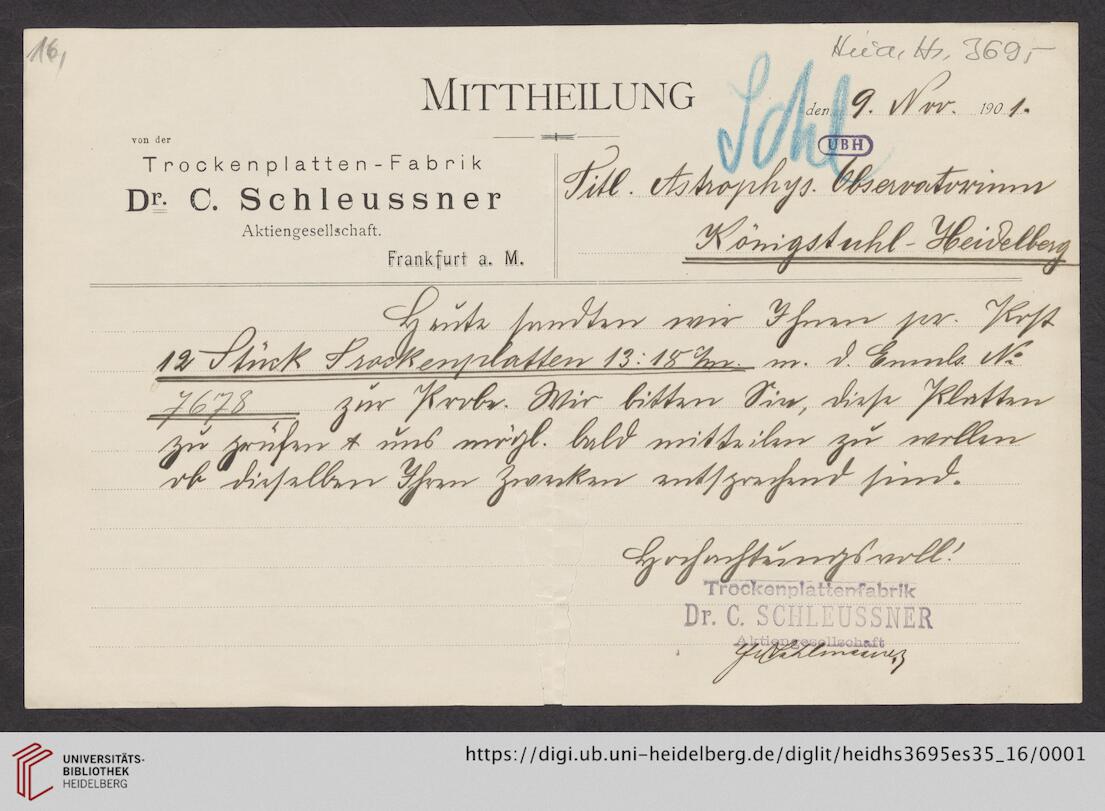 16,
Heid. Hs. 369
MITTHEILUNG
Schl
den 9. Nov. 1901.
UBH
von der
Trockenplatten-Fabrik
Dr. C. Schleussner
Aktiengesellschaft.
Frankfurt a. M.
Titl. Astrophys. Observatorium
Königstuhl-Heidelberg
Heute sandten wir Ihnen pr. Post
12 Stück Trockenplatten 13:18 c/m. m. d. Emuls. No
7678 zur Probe. Wir bitten Sie, diese Platten
zu prüfen & uns mögl. bald mitteilen zu wollen
ob dieselben Ihren Zwecken entsprechend sind.
Hochachtungsvoll!
Trockenplattenfabrik
Dr. C. SCHLEUSSNER
Aktiengesellschaft
UNIVERSITÄTS-
BIBLIOTHEK
HEIDELBERG
https://digi.ub.uni-heidelberg.de/diglit/heidhs3695es35_16/0001